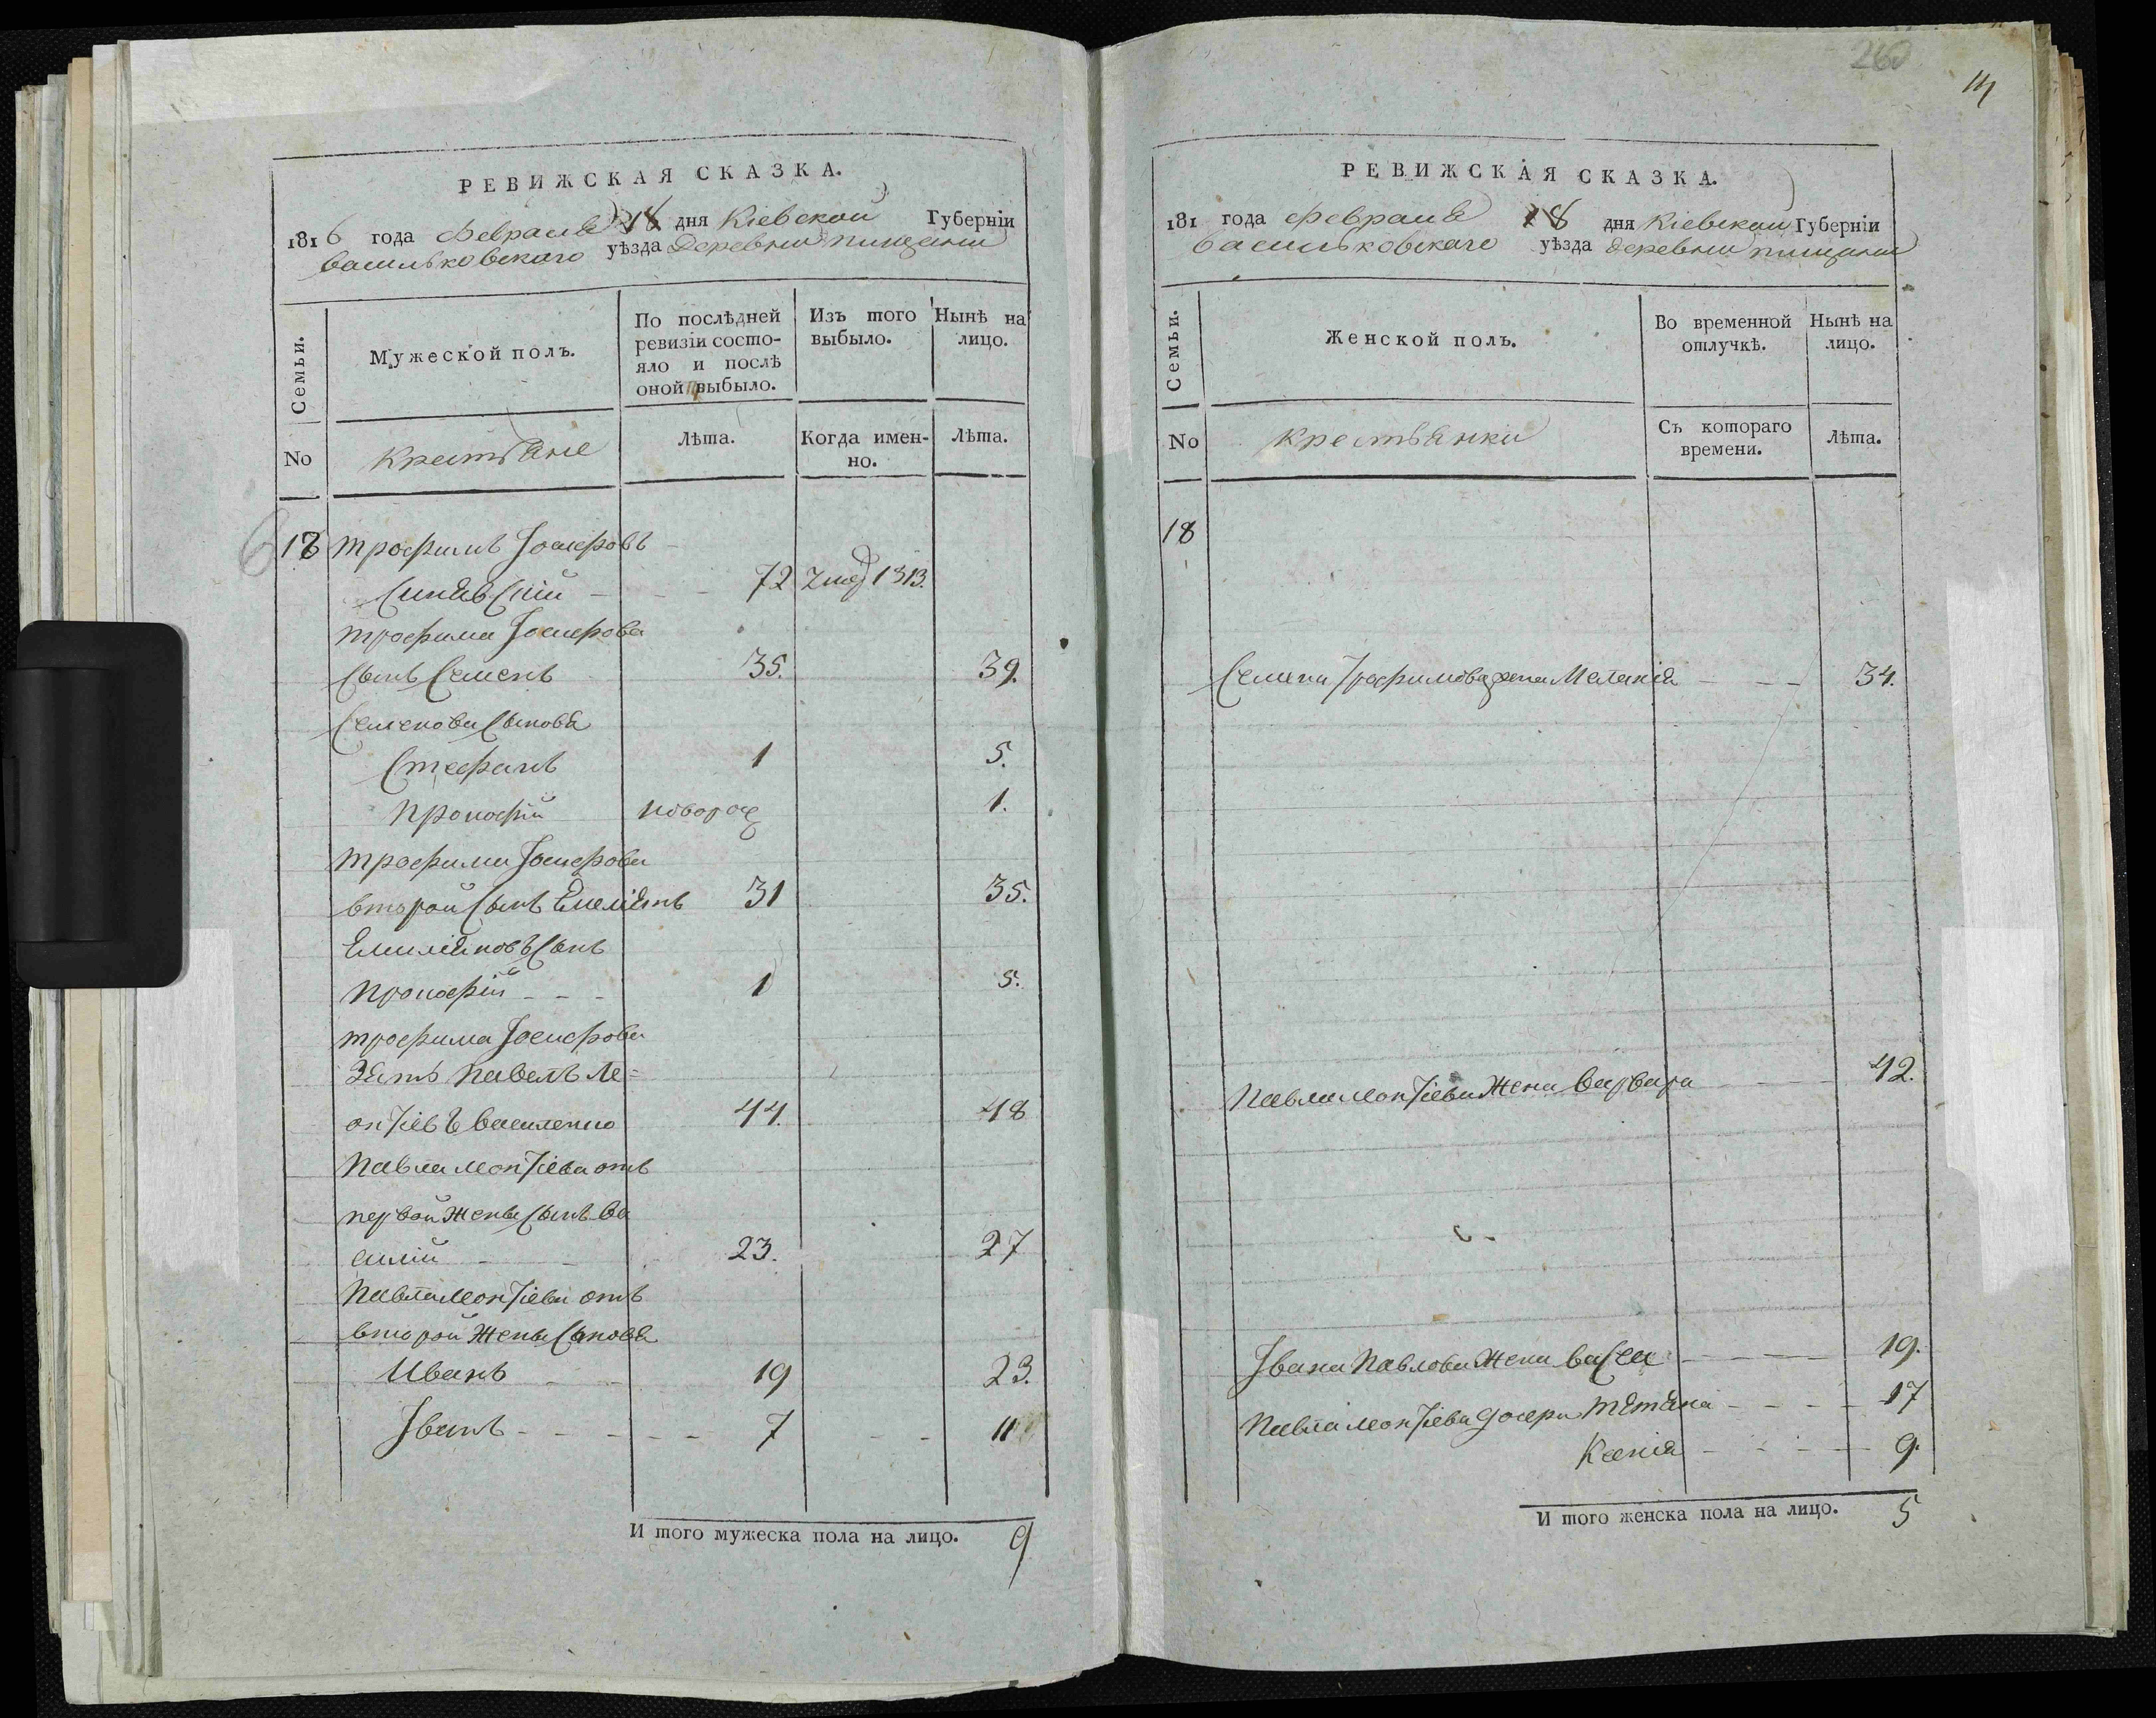 РЕВИЖСКАЯ СКАЗКА.
1816 года февраля 18 дня Кіевской Губерніи
васильковского уѣзда деревни пищики
Семьи.
Мужеской полъ.
По послѣдней ревизіи состо-
яло и послѣ
оной выбыло.
Изъ того выбыло.
Нынѣ на лицо.
No
крестьяне
Лѣта.
Когда имен-
но.
Лѣта.
18 трофимъ Іосифовъ
72 1813.
трофима Іосифова
сынъ Семенъ 35. 39.
Семенови сыновя
Стефанъ 1 5.
прокофій новорож 1.
трофима Іосифова
второй сынъ Емеліянъ 31 35.
Емиліяновъ сынъ
прокофій 1 5.
трофима Іосифова
Зять павелъ Ле=
онтіевъ василенко 44. 48
павла леонтіева отъ
первой жены сынъ ва
силій 23. 27
павла леонтіева отъ
второй жены сыновя
Иванъ 19 23.
Іванъ 7 11
И того мужеска пола на лицо. 9
260
14
РЕВИЖСКАЯ СКАЗКА.
181 года февраля 18 дня Кіевской Губерніи
васильковского уѣзда деревни пищики
Семьи.
Женской полъ.
Во временной отлучкѣ.
Нынѣ на лицо.
No
крестьянки
Съ котораго времени.
Лѣта.
18
Семена Трофимова жена Маланія 34.
Павла леонтіева жена варвара 42.
Івана павлова жена васса 19.
павла леонтіева дочери тятяна 17
Ксенія 9.
И того женска пола на лицо. 5